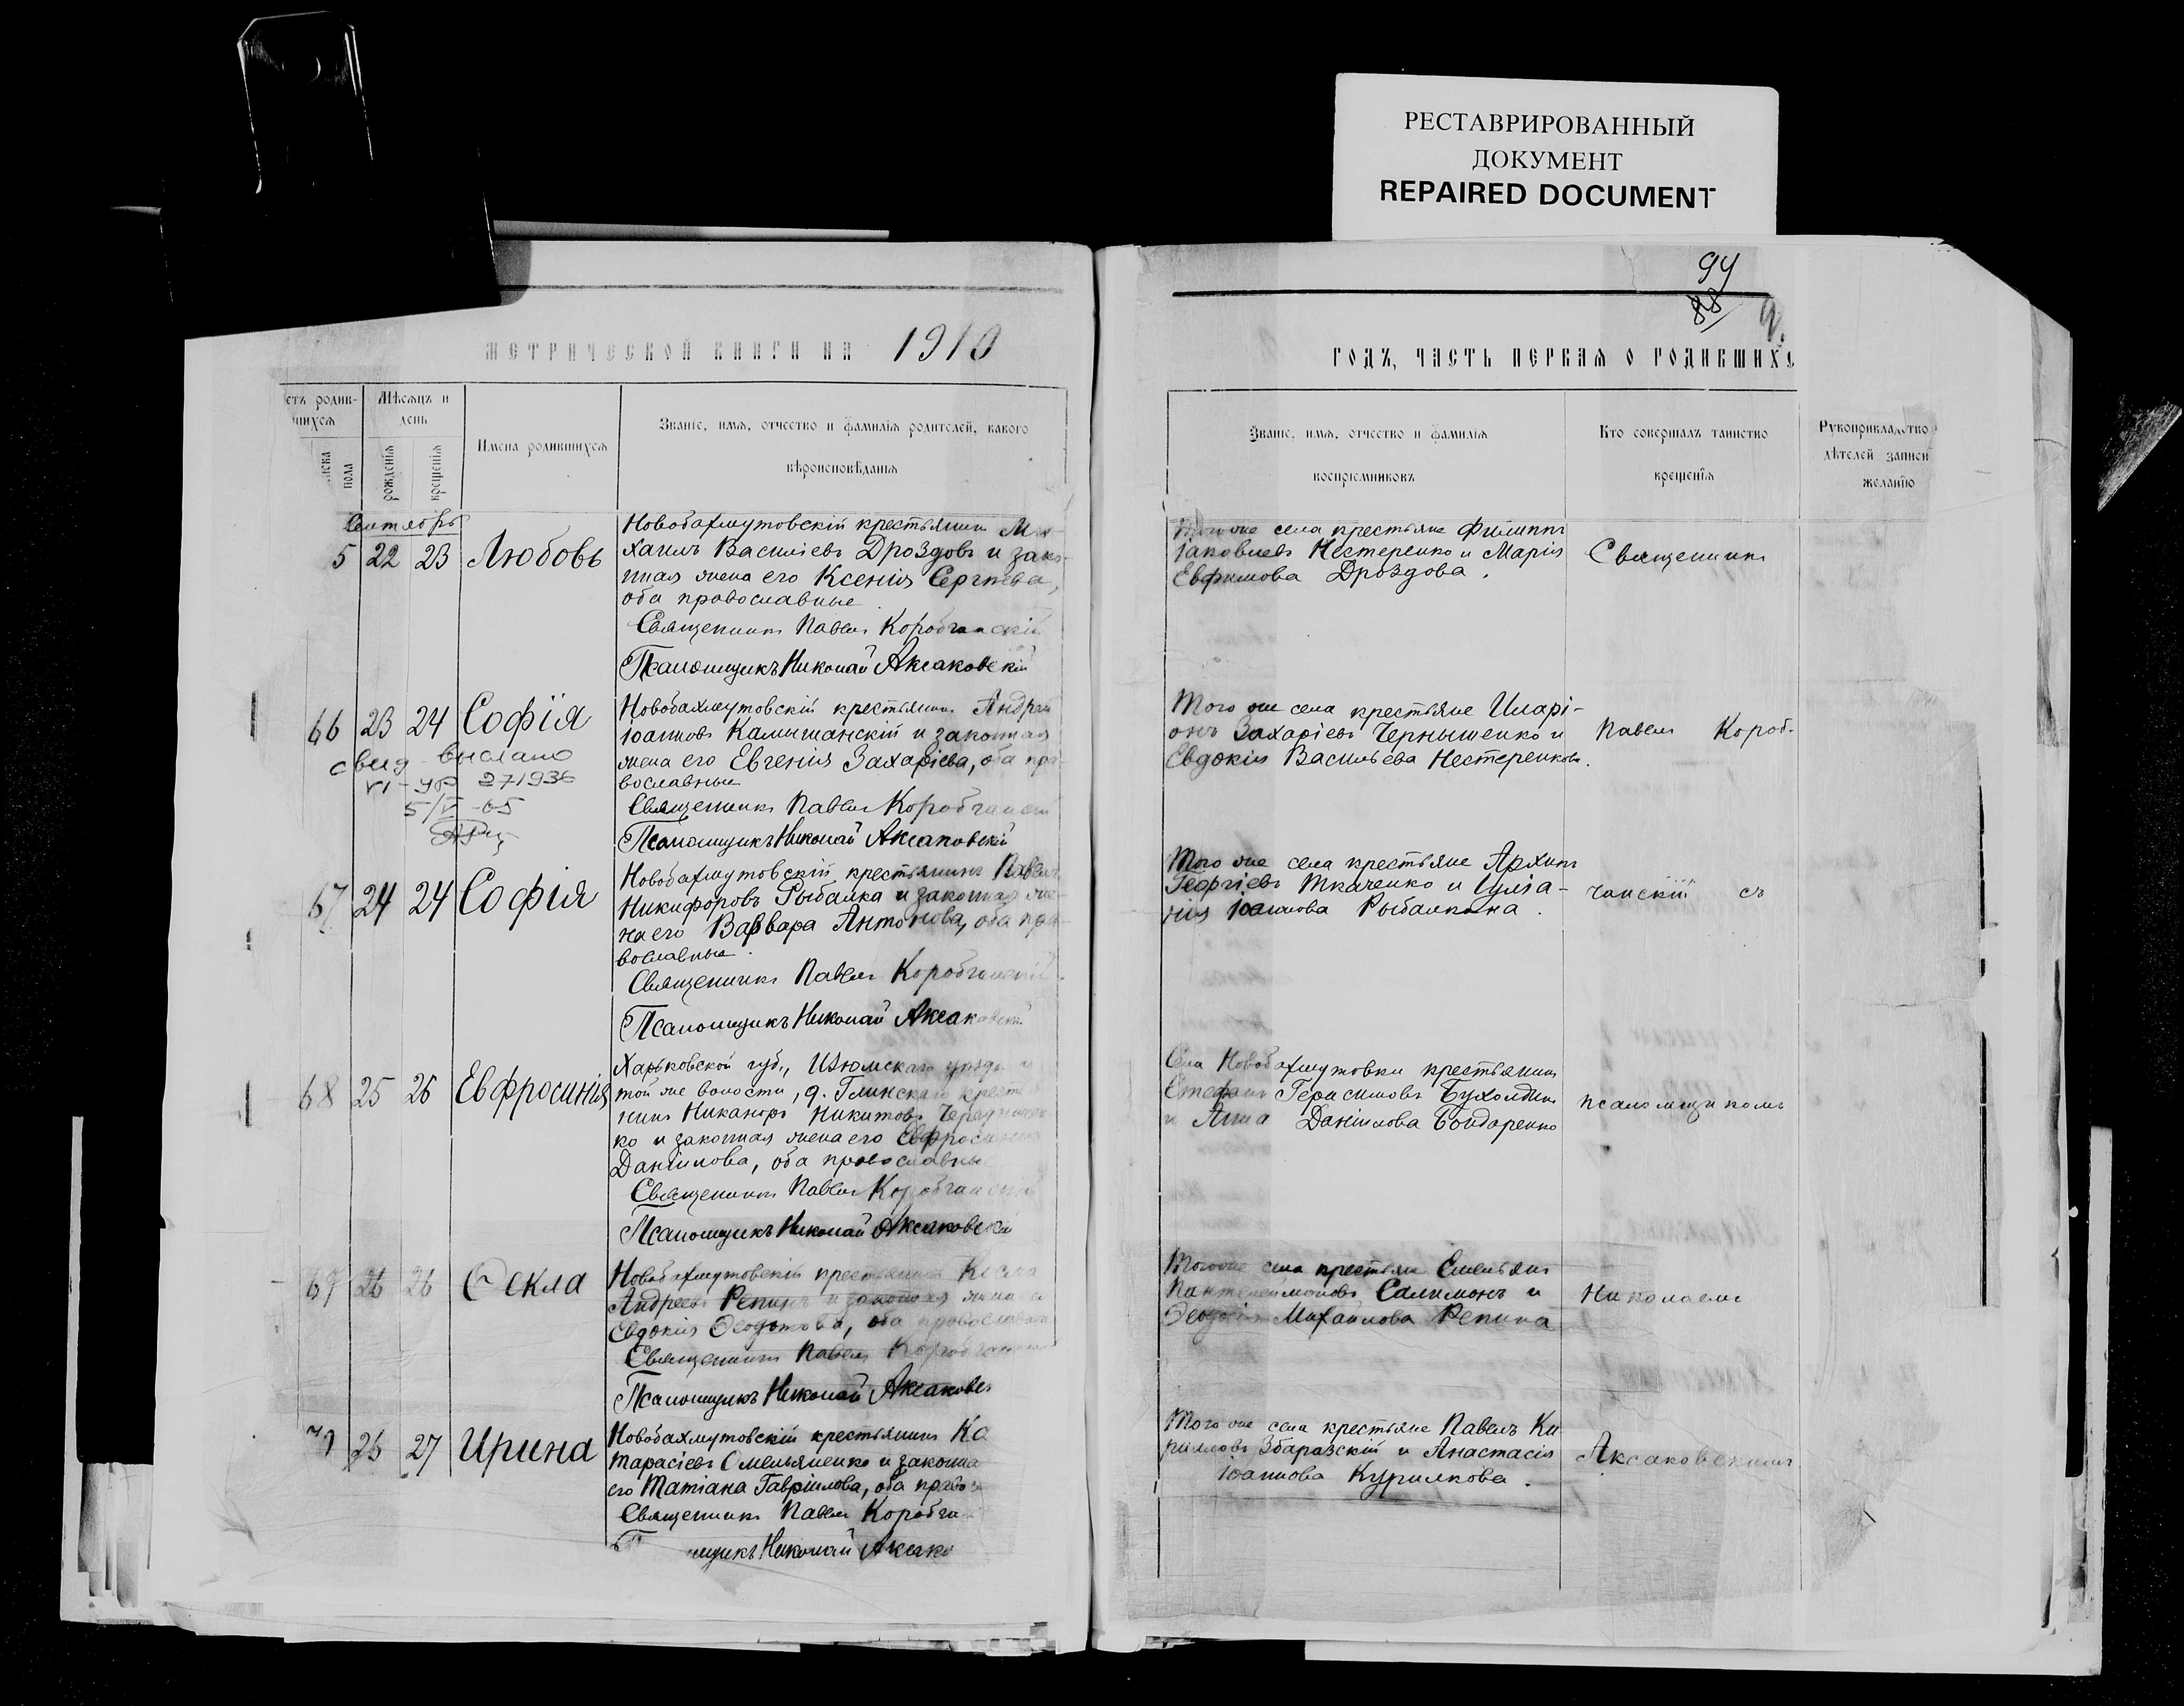 РЕСТАВРИРОВАННЫЙ
ДОКУМЕНТ
REPAIRED DOCUMENT
94
88
МЕТРИЧЕСКОЙ КНИГИ НА 1910
ГОДЪ, ЧАСТЬ ПЕРВАЯ О РОДИВШИХС
етъ родив-
шихся
пола
Мѣсяцъ и
день
рожденія
крещенія
Имена родившихся
Званіе, имя, отчество и фамилія родителей, какого
вѣроисповѣданія
Званіе, имя, отчество и фамилія
воспріемниковъ
Кто совершалъ таинство
крещенія
Рукоприкладство
дѣтелей записи
желанію
Сентябрь
5 22 23 Любовь
Новобахмутовскій крестьянинъ Ми-
хаилъ Василіевъ Дроздовъ и закон-
ная жена его Ксенія Сергѣева,
оба православные
Священникъ Павелъ Коробчанскій
Псаломщикъ Николай Аксаковскій
Того же села крестьяне Филиппъ
Іаковлевъ Нестеренко и Марія
Евфимова Дроздова.
Священникъ
66 23 24 Софія
свид. выслано
VI-ЯР 271936
5/V-65
Новобахмутовскій крестьянинъ Андрей
Іоанновъ Камышанскій и законная
жена его Евгенія Захаріева, оба пра-
вославные
Священникъ Павелъ Коробчанскій
Псаломщикъ Николай Аксаковскій
Того же села крестьяне Иларі-
онъ Захаріевъ Чернышенко и
Евдокія Васильева Нестеренкова.
Павелъ Короб-
67 24 24 Софія
Новобахмутовскій крестьянинъ Павелъ
Никифоровъ Рыбалка и законная же-
на его Варвара Антонова, оба пра-
вославные.
Священникъ Павелъ Коробчанскій
Псаломщикъ Николай Аксаковскій
Того же села крестьяне Архипъ
Георгіевъ Ткаченко и Іуліа-
нія Іоаннова Рыбалкина.
чанскій съ
68 25 26 Евфросинія
Харьковской губ., Изюмскаго уѣзда и
той же волости, д. Глинской крестья
нинъ Никаноръ Никитовъ Череднич
ко и законная жена его Евфросинія
Даніилова, оба православные
Священникъ Павелъ Коробчанскій
Псаломщикъ Николай Аксаковскій
Села Новобахмутовки крестьянинъ
Стефанъ Герасимовъ Бухолдинъ
и Анна Даніилова Бондаренко
псаломщикомъ
69 26 26 Ѳекла
Новобахмутовскій крестьянинъ Косма
Андреевъ Репинъ и законная жена его
Евдокія Ѳеодотова, оба православные
Священникъ Павелъ Коробчанскій
Псаломщикъ Николай Аксаковск
Того же села крестьяне Емельянъ
Пантелеимоновъ Салимонъ и
Ѳеодосія Михаилова Репина
Николаемъ
70 26 27 Ирина
Новобахмутовскій крестьянинъ Ко
Тарасіевъ Омельяненко и законна
его Татіана Гавріилова, оба право
Священникъ Павелъ Коробча
П мщикъ Николай Аксако
Того же села крестьяне Павелъ Ки
рилловъ Збаразскій и Анастасія
Іоаннова Курилкова.
Аксаковскимъ